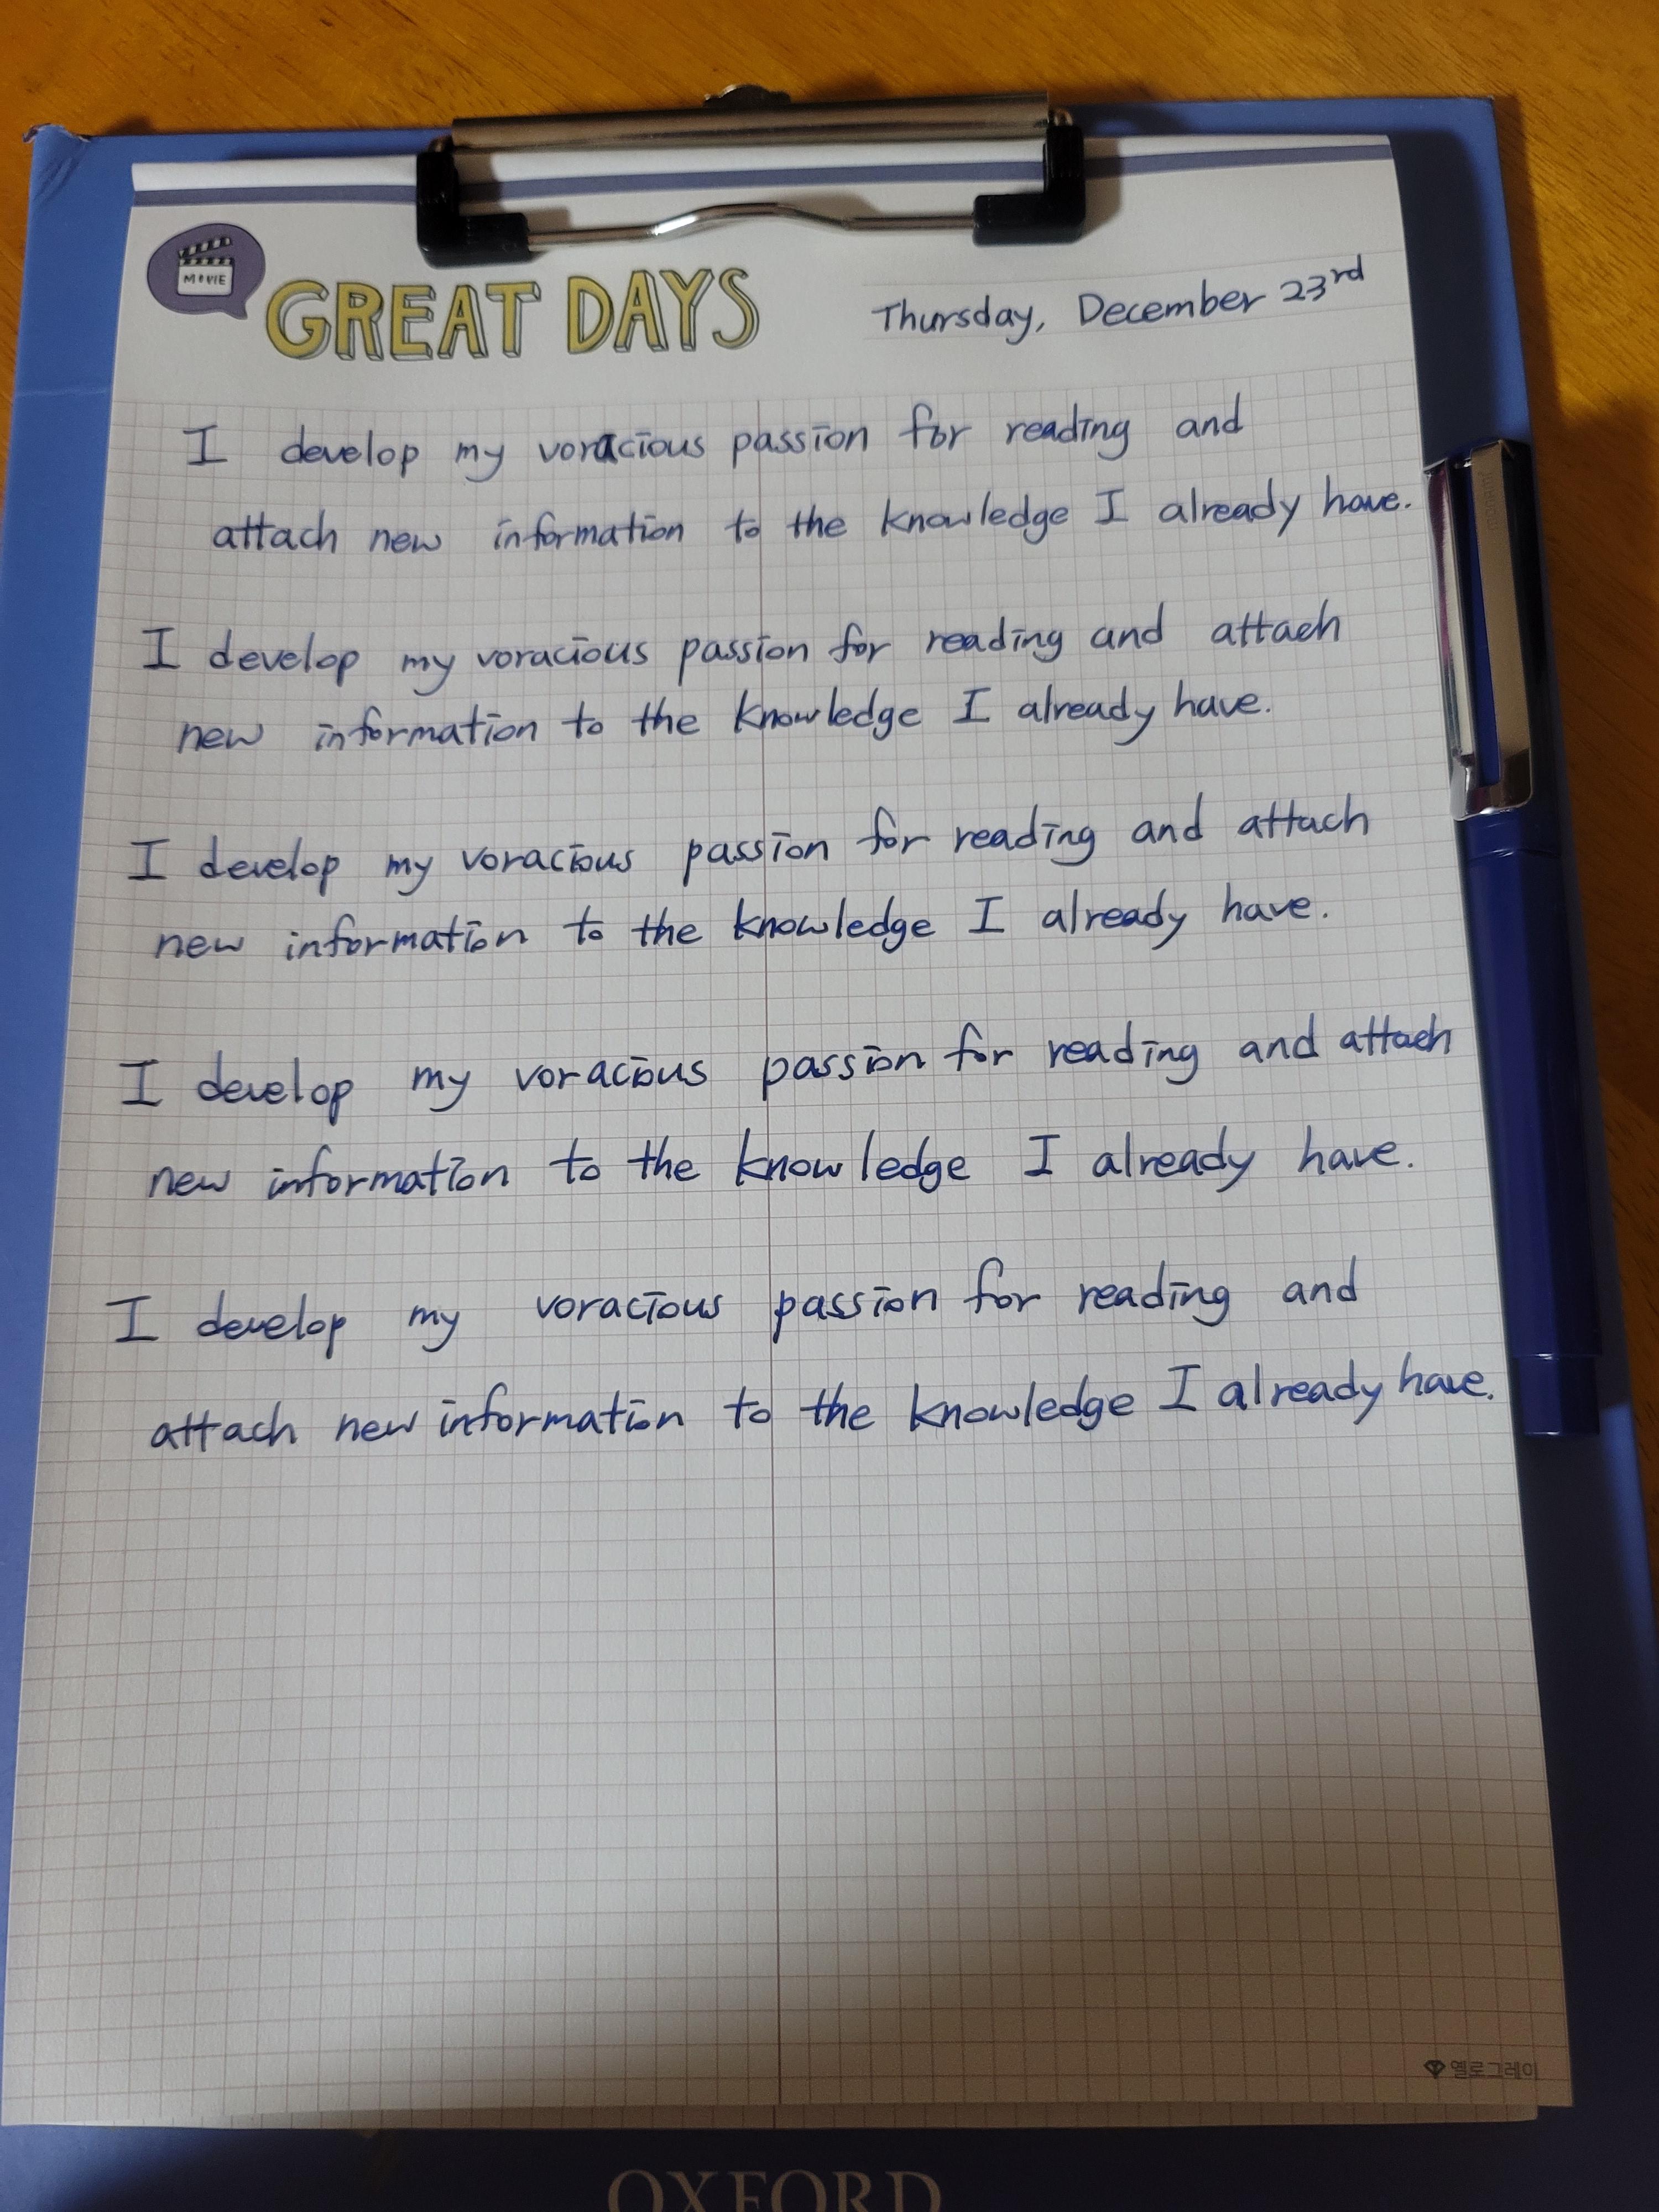 MOVIE
GREAT DAYS
Thursday, December 23rd
I develop my voracious passion for reading and
attach new information to the knowledge I already have.
I develop my voracious passion for reading and attach
new information to the knowledge I already have.
I develop my voracious passion for reading and attach
new information to the knowledge I already have.
I develop my voracious passion for reading and attach
new information to the knowledge I already have.
I develop my voracious passion for reading and
attach new information to the knowledge I already have.
옐로그레이
OXFORD